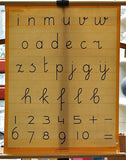 i n m u v w
o a d e c r
s z t p j g ij
h k f l b
1 2 3 4 5 + -
6 7 8 9 10 =